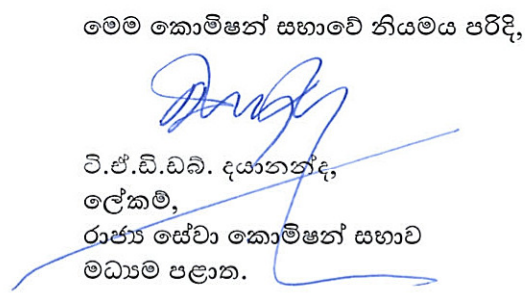 මෙම කොමිෂන් සභාවේ නියමය පරිදි,
ටී.ඒ.ඩී.ඩබ්. දයානන්ද,
ලේකම්,
රාජ්‍ය සේවා කොමිෂන් සභාව
මධ්‍යම පළාත.